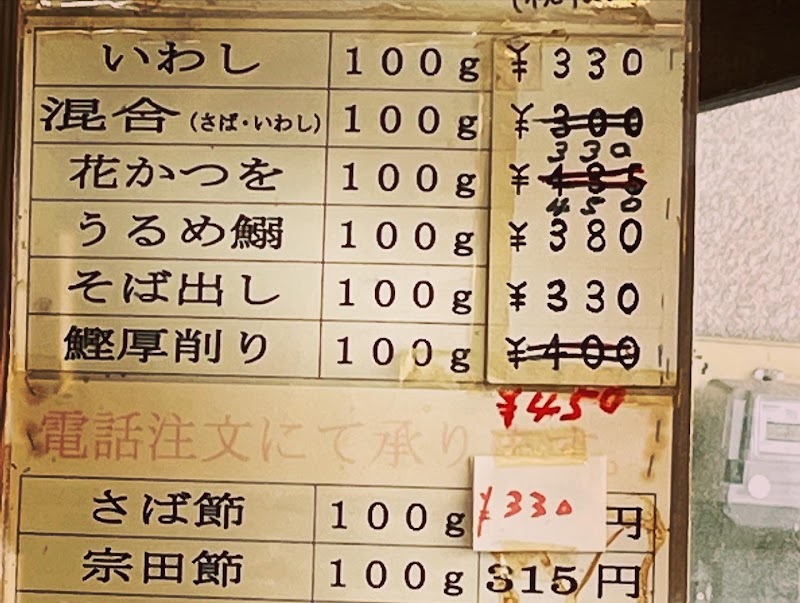 いわし 100g ¥330
混合(さば・いわし) 100g ¥300
330
花かつを 100g ¥485
450
うるめ鰯 100g ¥380
そば出し 100g ¥330
鰹厚削り 100g ¥400
¥450
電話注文にて承ります。
さば節 100g ¥330 円
宗田節 100g 315円